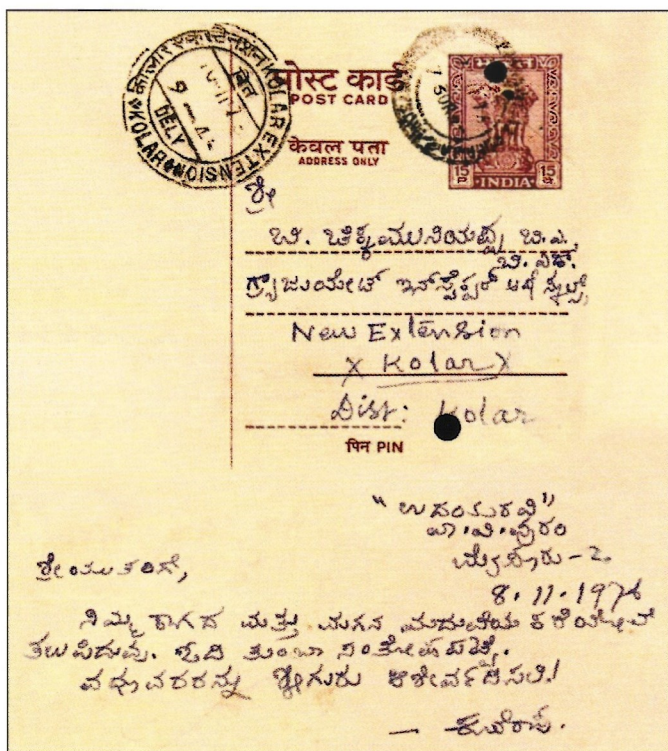 कोलार एक्स्टेन्शन KOLAR EXTENSION
KOLAR
DELY
पोस्ट कार्ड
POST CARD
केवल पता
ADDRESS ONLY
भारत
15
P
15
INDIA
ಶ್ರೀ
ಬಿ. ಚಿಕ್ಕಮುನಿಯಪ್ಪ ಬಿ.ಎ,
ಬಿ.ಎಡ್.
ಗ್ರ್ಯಾಜುಯೇಟ್ ಇನ್‌ಸ್ಪೆಕ್ಟರ್ ಆಫ್ ಸ್ಕೂಲ್ಸ್,
New Extension
X Kolar X
Dist: Kolar
पिन PIN
"ಉದಯರವಿ"
ವಾ.ವಿ.ಪುರಂ
ಮೈಸೂರು-2
8.11.1974
ಶ್ರೀಯುತರಿಗೆ,
ನಿಮ್ಮ ಕಾಗದ ಮತ್ತು ಮಗನ ಮದುವೆಯ ಕರೆಯೋಲೆ
ತಲುಪಿದುವು. ಓದಿ ತುಂಬಾ ಸಂತೋಷಪಟ್ಟೆ.
ವಧೂವರರನ್ನು ಶ್ರೀಗುರು ಆಶೀರ್ವದಿಸಲಿ!
— ಕುವೆಂಪು.